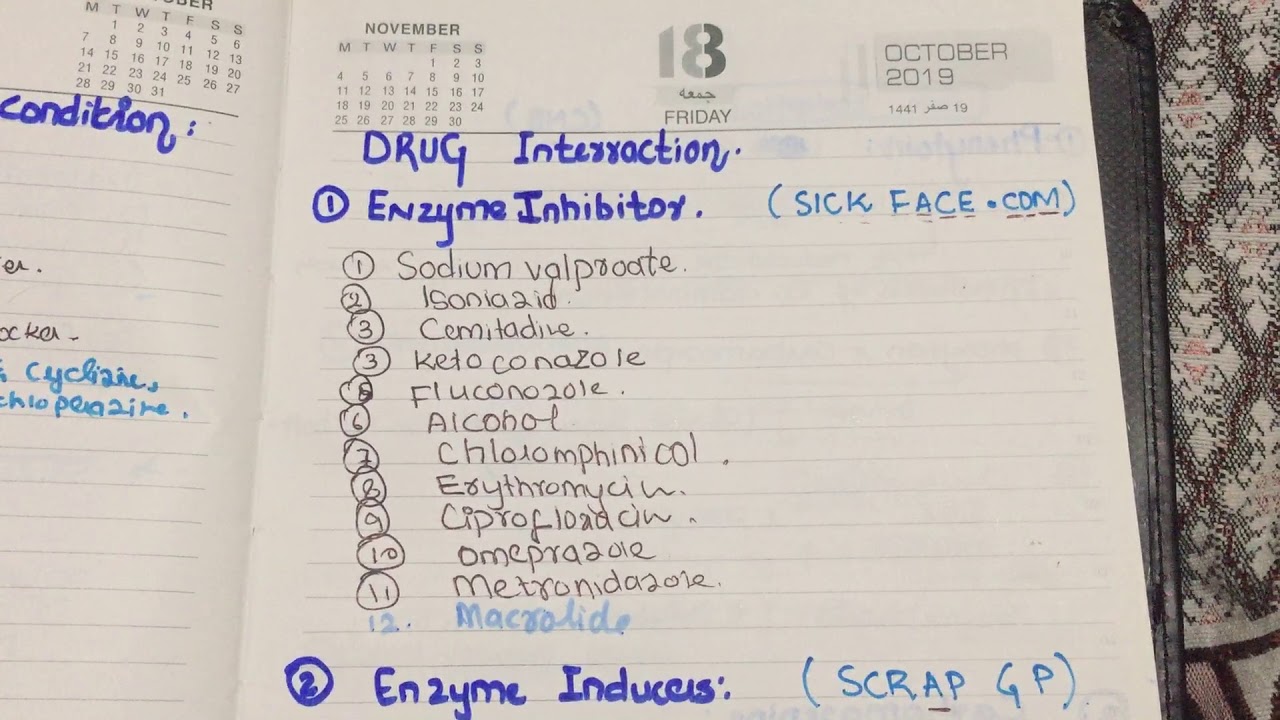 OBER
M T W T F S S
1 2 3 4 5 6
7 8 9 10 11 12 13
14 15 16 17 18 19 20
21 22 23 24 25 26 27
28 29 30 31
condition:
er.
ocker.
cyclizine,
chloperazine.
NOVEMBER
M T W T F S S
1 2 3
4 5 6 7 8 9 10
11 12 13 14 15 16 17
18 19 20 21 22 23 24
25 26 27 28 29 30
18
جمعه
FRIDAY
OCTOBER
2019
19 صفر 1441
DRUG Interraction.
① Enzyme Inhibitor. (SICK FACE.COM)
① Sodium valproate.
② Isoniazid.
③ Cemitadine.
③ Ketoconazole
Fluconozole.
⑥ Alcohol
⑦ Chloromphinicol.
⑧ Erythromycin.
⑨ Ciprofloxacin.
⑩ omeprazole
⑪ Metronidazole.
12. Macrolide
② Enzyme Inducers: (SCRAP GP)